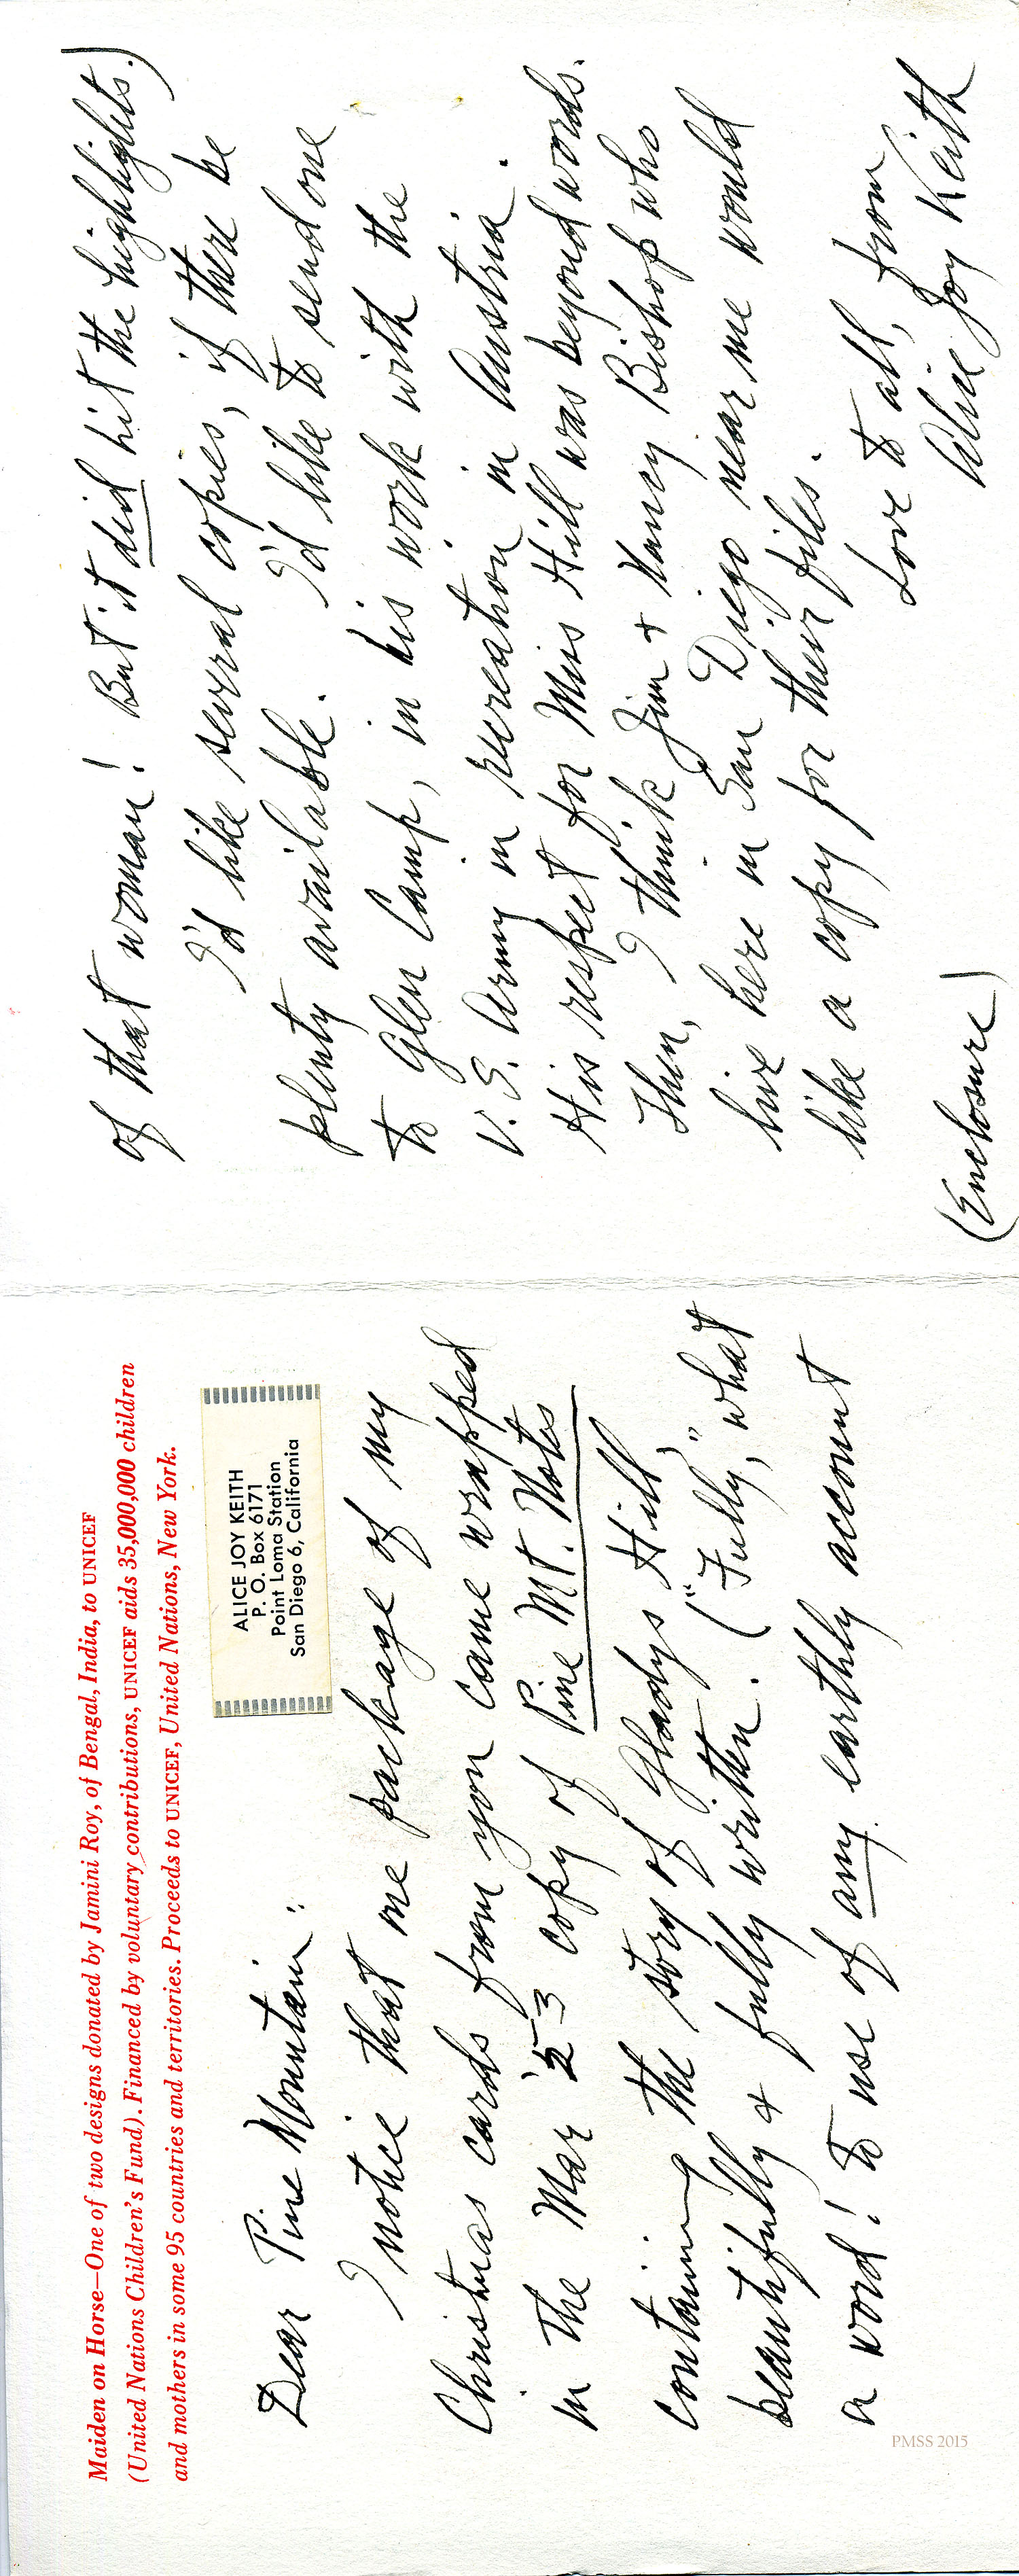 Maiden on Horse—One of two designs donated by Jamini Roy, of Bengal, India, to UNICEF
(United Nations Children's Fund). Financed by voluntary contributions, UNICEF aids 35,000,000 children
and mothers in some 95 countries and territories. Proceeds to UNICEF, United Nations, New York.
ALICE JOY KEITH
P. O. Box 6171
Point Loma Station
San Diego 6, California
Dear Pine Mountain:
I notice that one package of my
Christmas cards from you came wrapped
in the Mar '53 copy of Pine Mt. Notes
containing the story of Gladys Hill,
beautifully & fully written. ("Fully," what
a word! to use of any earthly account
of that woman! But it did hit the highlights.)
I'd like several copies, if there be
plenty available. I'd like to send one
to Glen Camp, in his work with the
U.S. Army in recreation in Austria.
His respect for Miss Hill was beyond words.
Then, I think Jim & Nancy Bishop who
live here in San Diego near me would
like a copy for their files.
Love to all, from
Alice Joy Keith
(Enclosure)
PMSS 2015